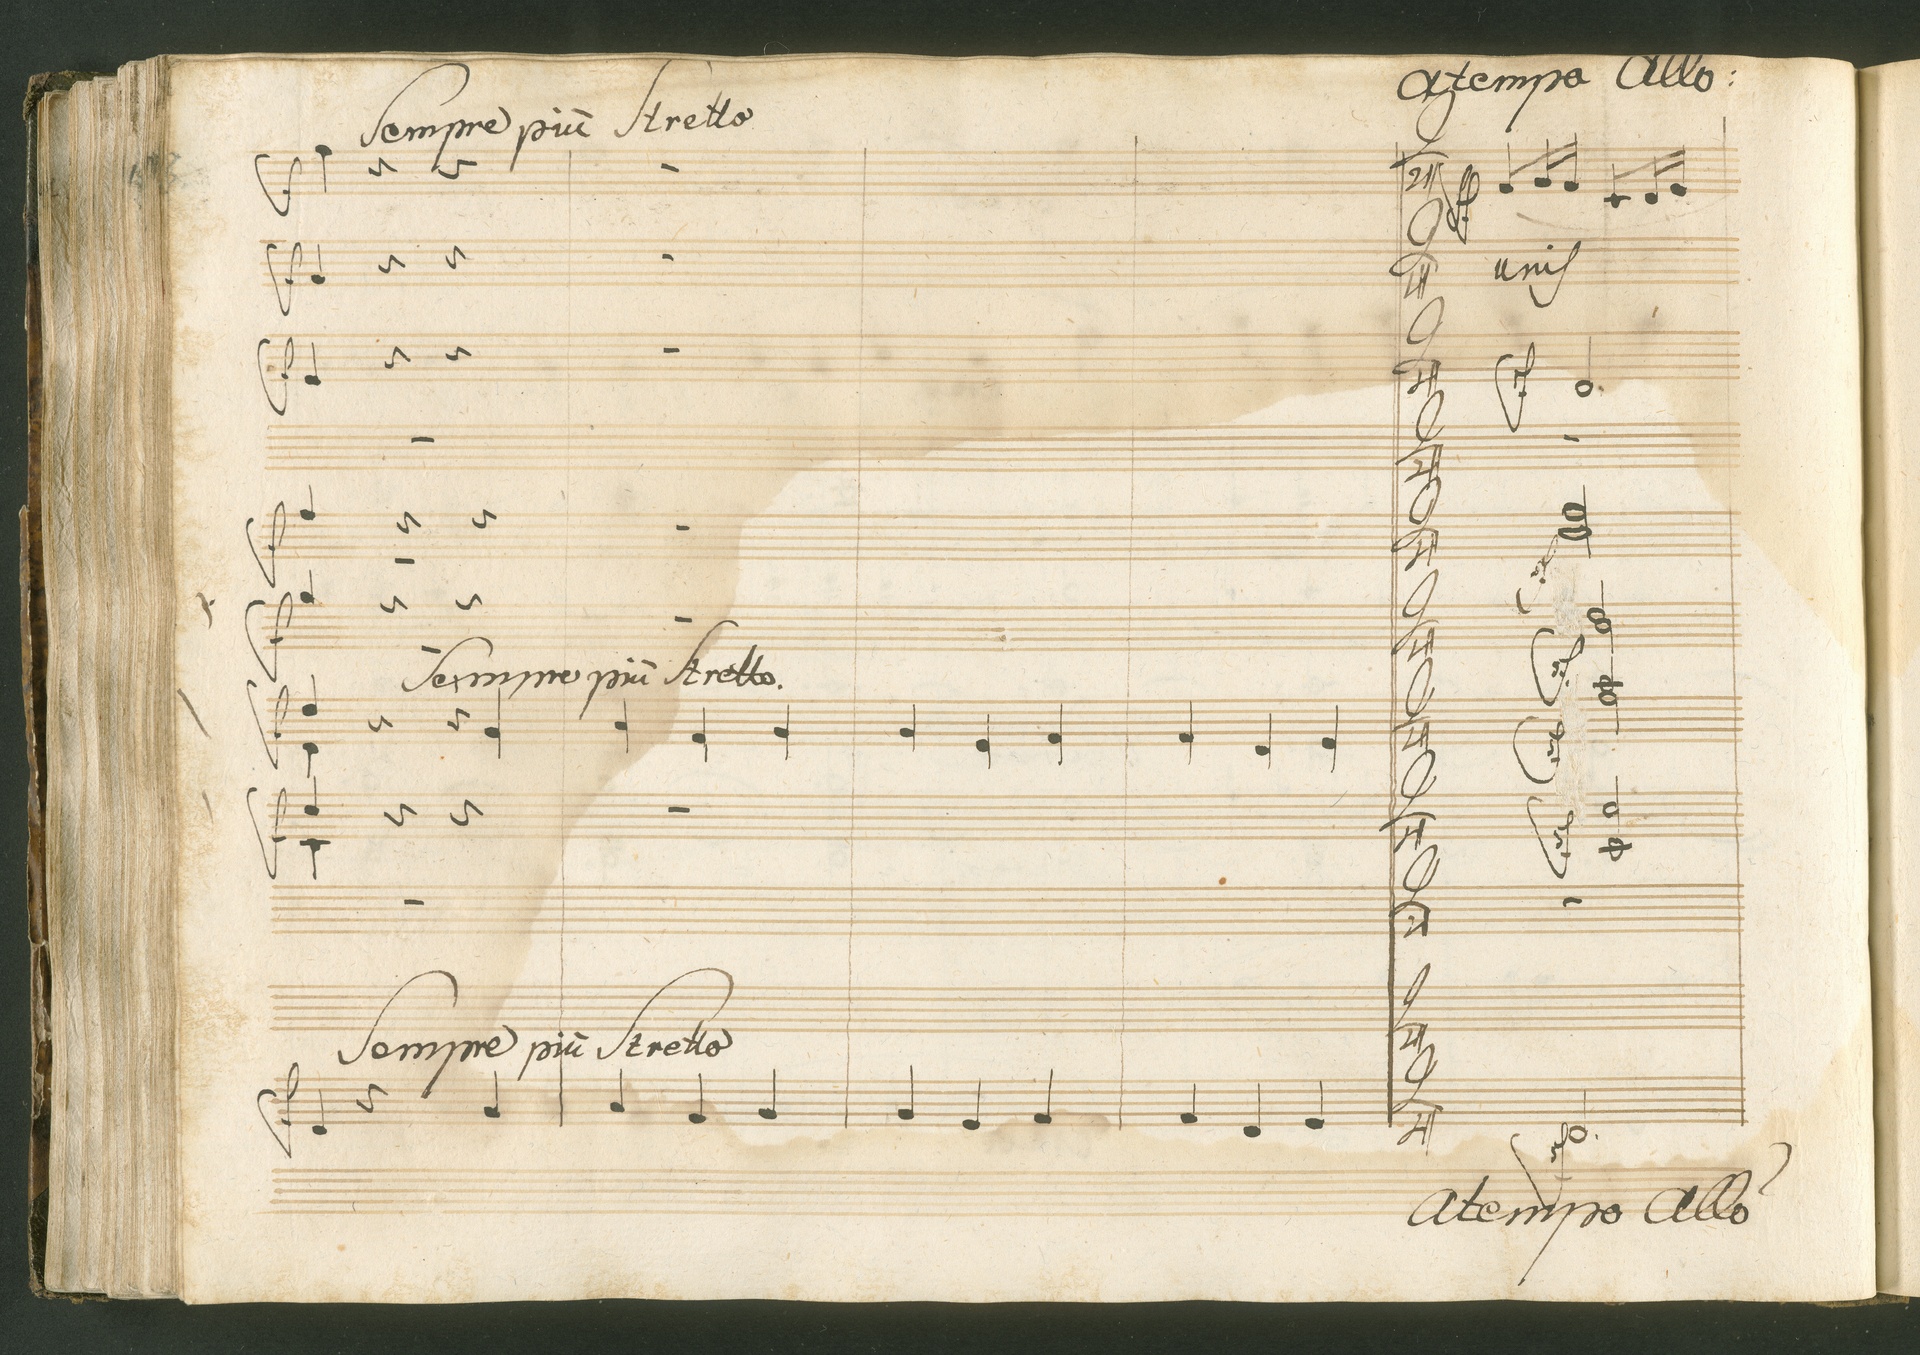 Sempre più Stretto
atempo Allo:
unis
Sempre più Stretto.
Sempre più Stretto
atempo Allo